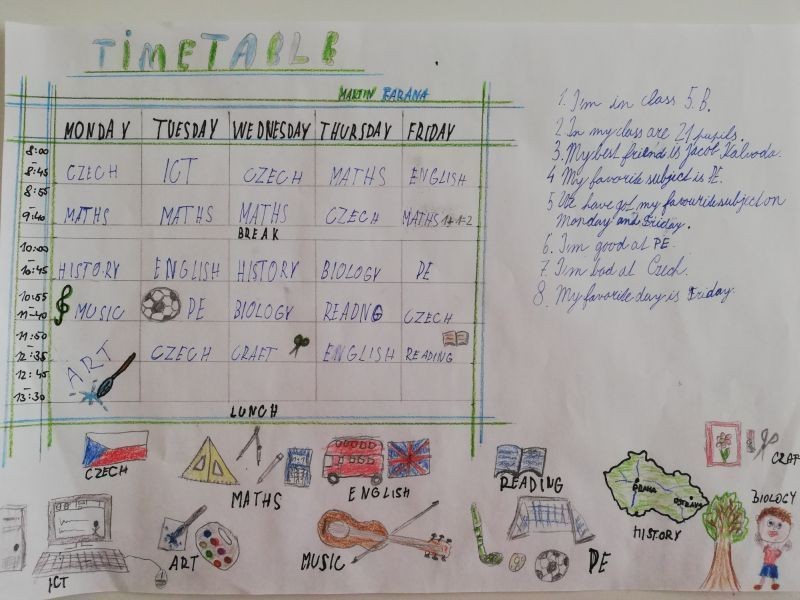 TIMETABLE
MARTIN BARANA
MONDAY TUESDAY WEDNESDAY THURSDAY FRIDAY
8:00 - 8:45 CZECH ICT CZECH MATHS ENGLISH
8:55 - 9:40 MATHS MATHS MATHS CZECH MATHS 1+1=2
BREAK
10:00 - 10:45 HISTORY ENGLISH HISTORY BIOLOGY PE
10:55 - 11-40 MUSIC PE BIOLOGY READNG CZECH
11:50 - 12:35 ART CZECH CRAFT ENGLISH READING
12:45 - 13:30
LUNCH
1. I'm in class 5.B.
2. In my class are 21 pupils.
3. My best friend is Jacob Kalvoda.
4 My favorite subject is PE.
5 We have got my favourite subject on
Monday and Friday.
6. I'm good at PE.
7. I'm bad at Czech.
8. My favorite day is Friday.
CZECH
MATHS
ENGLISH
READING
CRAF
ICT
ART
MUSIC
PE
PRAHA
OSTRAVA
HISTORY
BIOLOGY